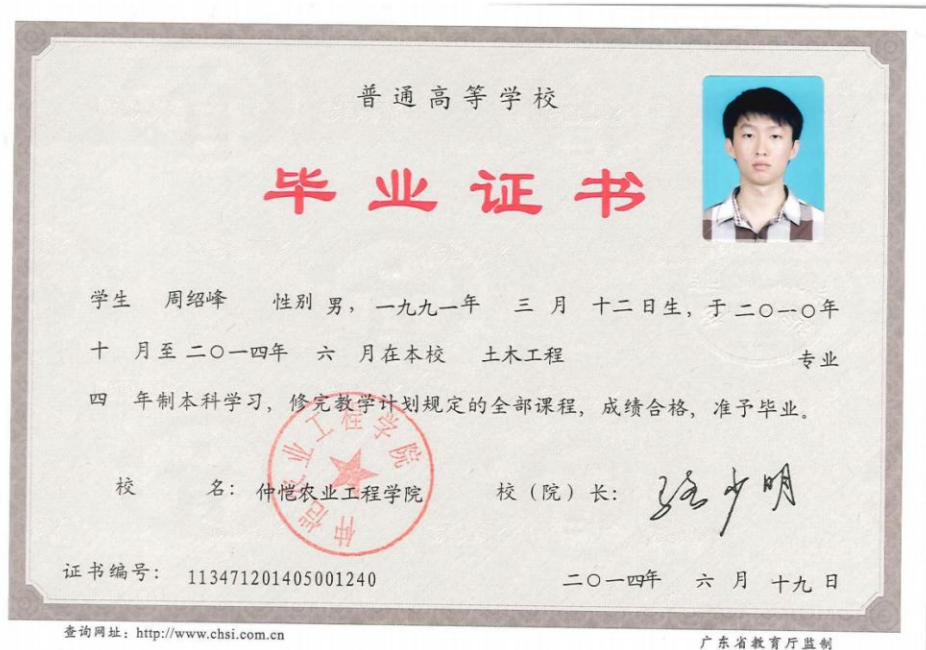 普通高等学校
毕业证书
学生 周绍峰 性别 男，一九九一年 三 月 十二日生，于二〇一〇年
十 月至二〇一四年 六 月在本校 土木工程 专业
四 年制本科学习，修完教学计划规定的全部课程，成绩合格，准予毕业。
仲恺农业工程学院
校 名：仲恺农业工程学院 校（院）长：骆少明
证书编号：113471201405001240 二〇一四年 六 月 十九 日
查询网址：http://www.chsi.com.cn 广东省教育厅监制